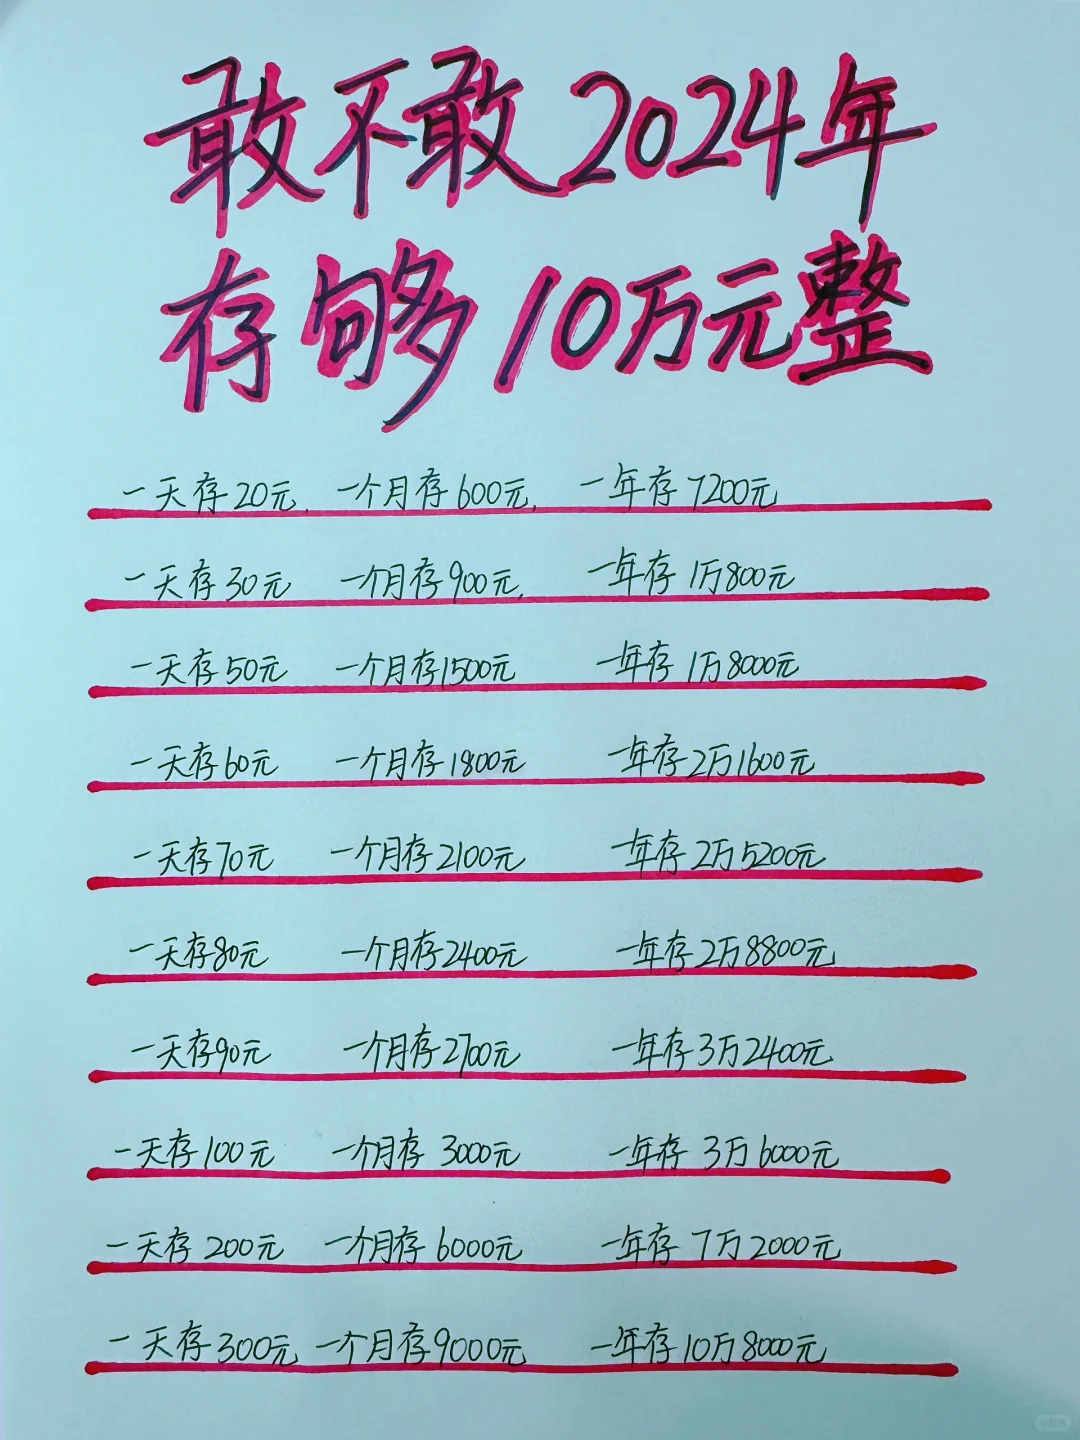 敢不敢2024年
存够10万元整
一天存20元、 一个月存600元, 一年存7200元
一天存30元 一个月存900元, 一年存1万800元
一天存50元 一个月存1500元 一年存1万8000元
一天存60元 一个月存1800元 一年存2万1600元
一天存70元 一个月存2100元 一年存2万5200元
一天存80元 一个月存2400元 一年存2万8800元
一天存90元 一个月存2700元 一年存3万2400元
一天存100元 一个月存3000元 一年存3万6000元
一天存200元 一个月存6000元 一年存7万2000元
一天存300元 一个月存9000元 一年存10万8000元